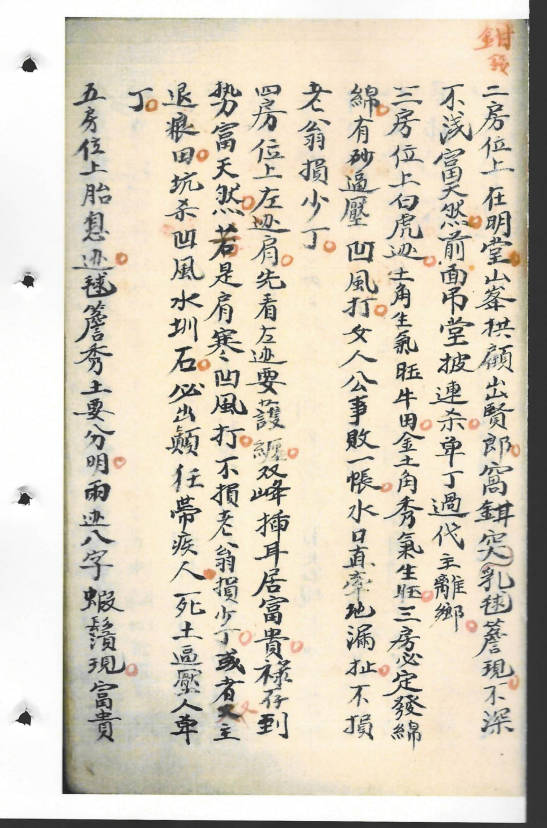 鉗
二房位上在明堂山峯拱顧出賢郎窩鉗突乳毬簷現不深
不浅富天然前面吊堂披連杀单丁過代主離鄉
三房位上白虎迹土角生氣旺牛田金土角秀氣生旺三房必定發綿
綿有砂逼壓凹風打女人公事敗一帳水口直牽地漏扯不損
老翁損少丁
四房位上左迹肩先看左迹要護纏双峰插耳居富貴祿存到
势富天然若是肩寒凹風打不損老翁損少丁或者又主
退粮田坑杀凹風水圳石必出顛狂帶疾人死土逼壓人单
丁
五房位上胎息迹毬簷秀土要分明兩迹八字蝦鬚現富貴